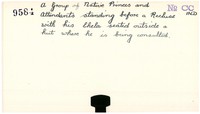 9564
A Group of Native Princes and No CC
Attendants standing before a Recluse IND
with his Chela seated outside a
hut when he is being consulted.